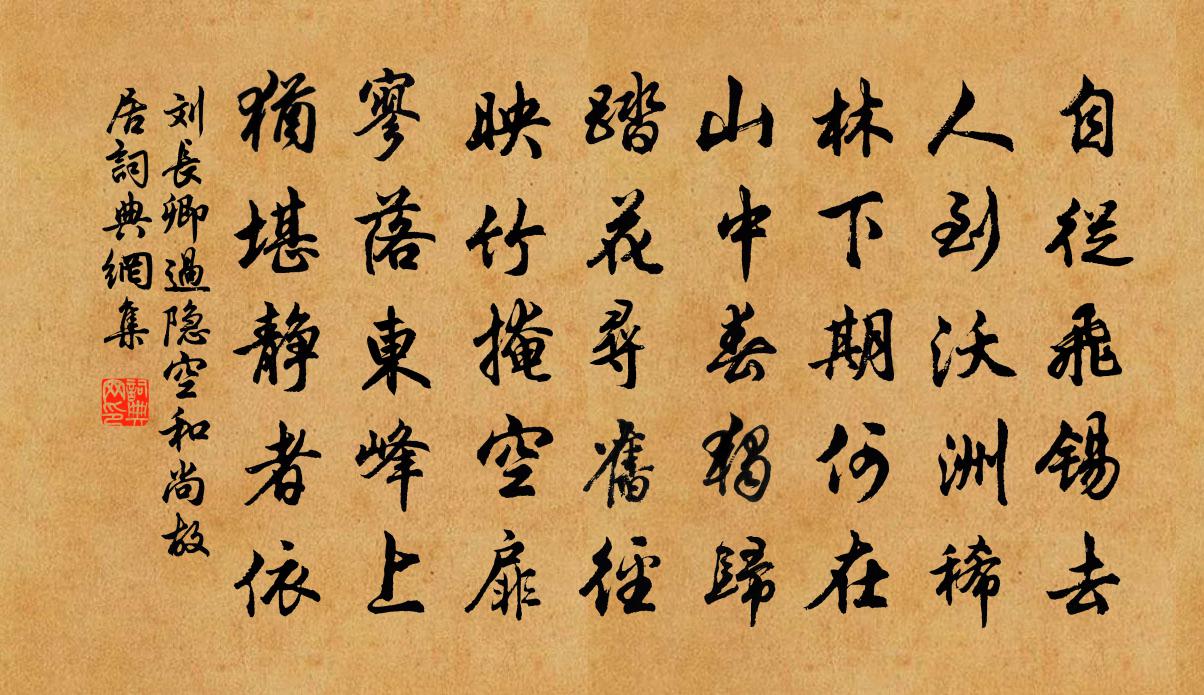 自從飛錫去
人到沃洲稀
林下期何在
山中春獨歸
踏花尋舊徑
映竹掩空扉
寥落東峰上
猶堪靜者依
刘長卿過隐空和尚故
居詞典網集
詞典網印